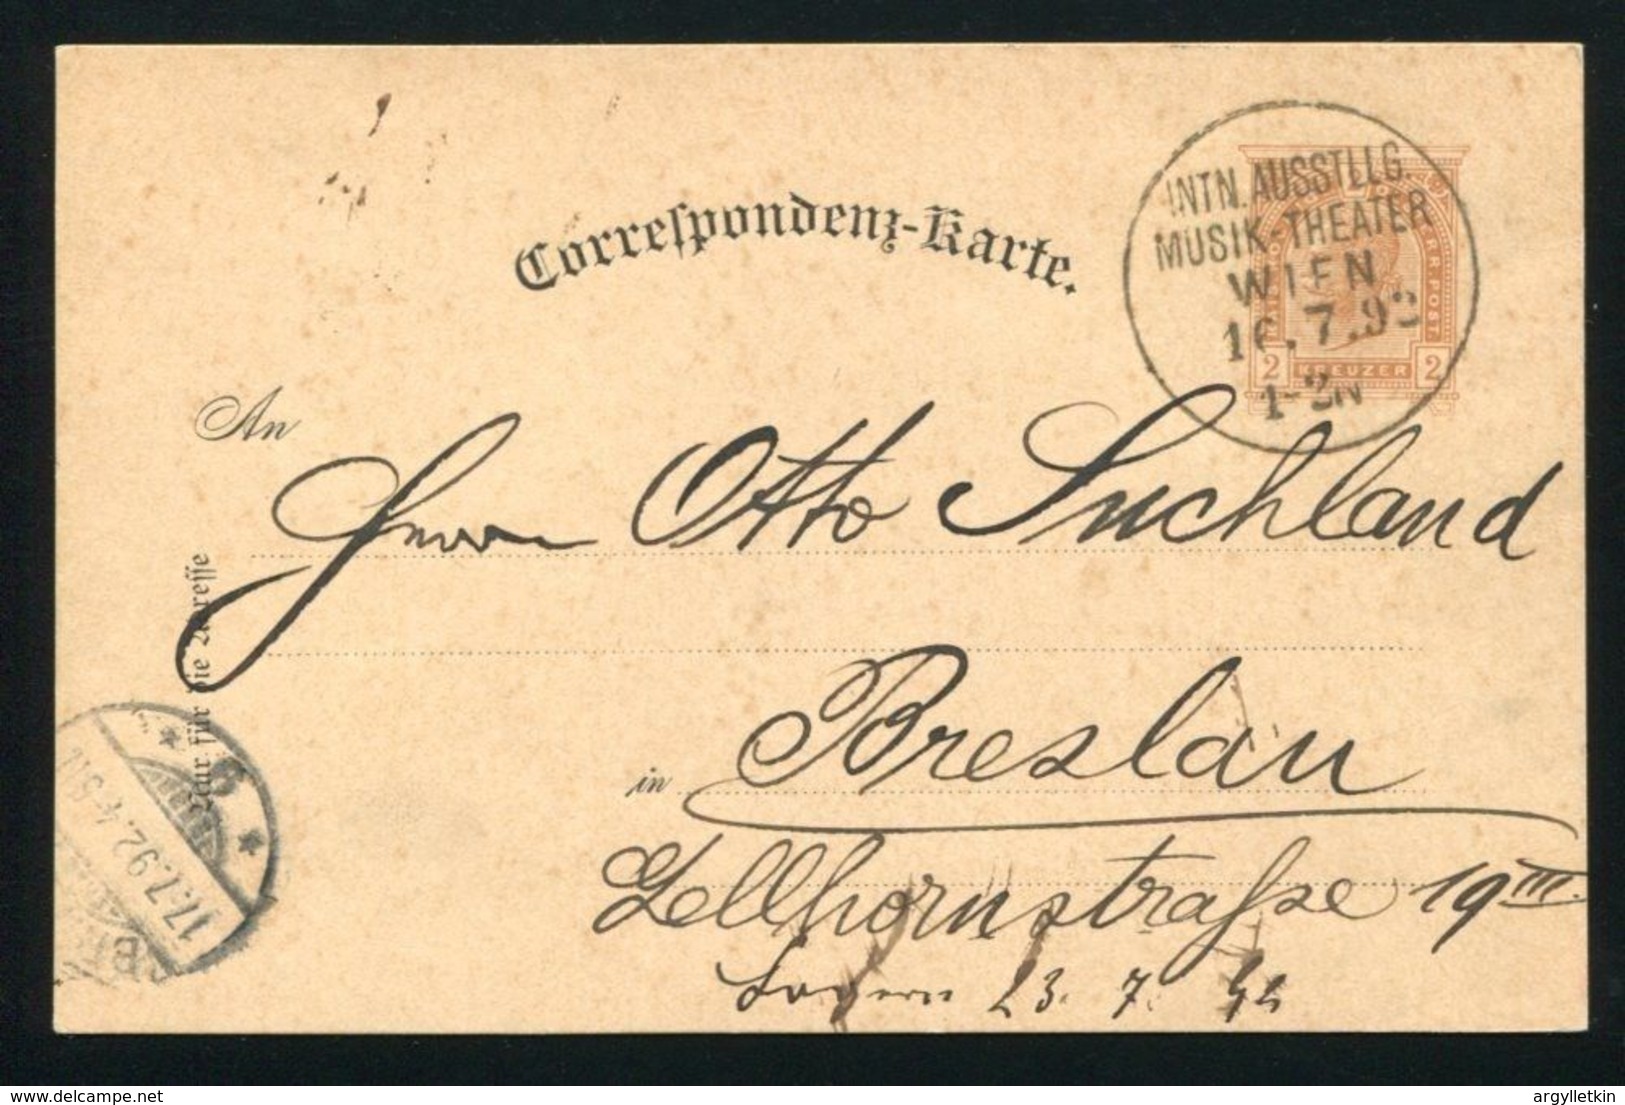 Correspondenz-Karte.
INTN. AUSSTLLG.
MUSIK-THEATER
WIEN
16.7.92
1-2N
2 KREUZER 2
An
Herrn Otto Suchland
Nur für die Adresse
in Breslau
Lellhornstraße 19 III.
23. 7. 92
6
17.7.92.4-5N
argylletkin
delcampe.net